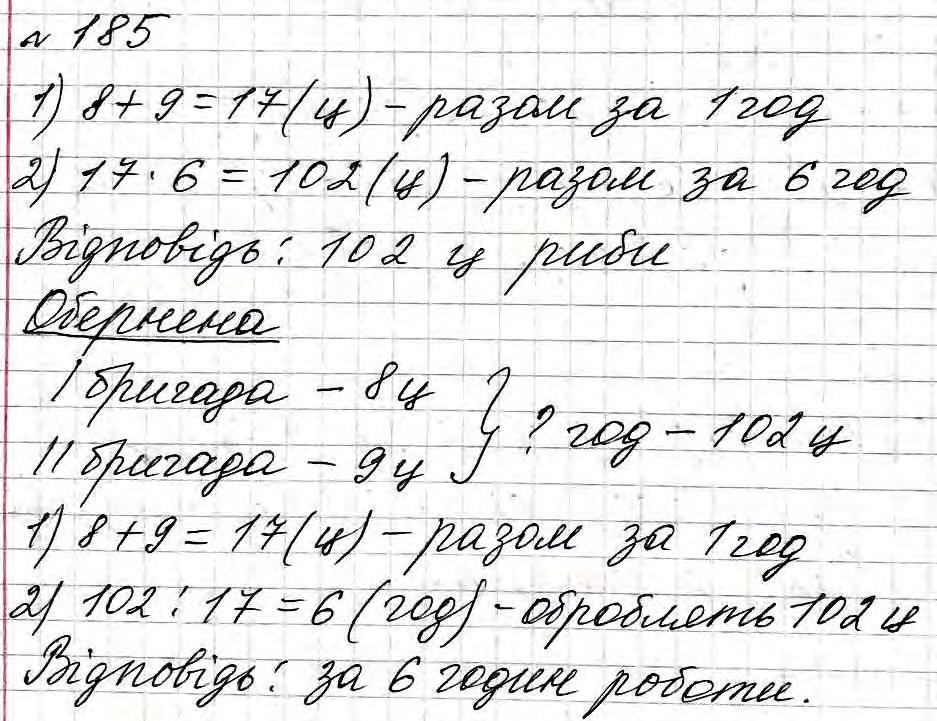 № 185
1) 8 + 9 = 17 (ц) – разом за 1 год
2) 17 · 6 = 102 (ц) – разом за 6 год
Відповідь: 102 ц риби
Обернена
I бригада – 8 ц } ? год – 102 ц
II бригада – 9 ц
1) 8 + 9 = 17 (ц) – разом за 1 год
2) 102 : 17 = 6 (год) – оброблять 102 ц
Відповідь: за 6 годин роботи.